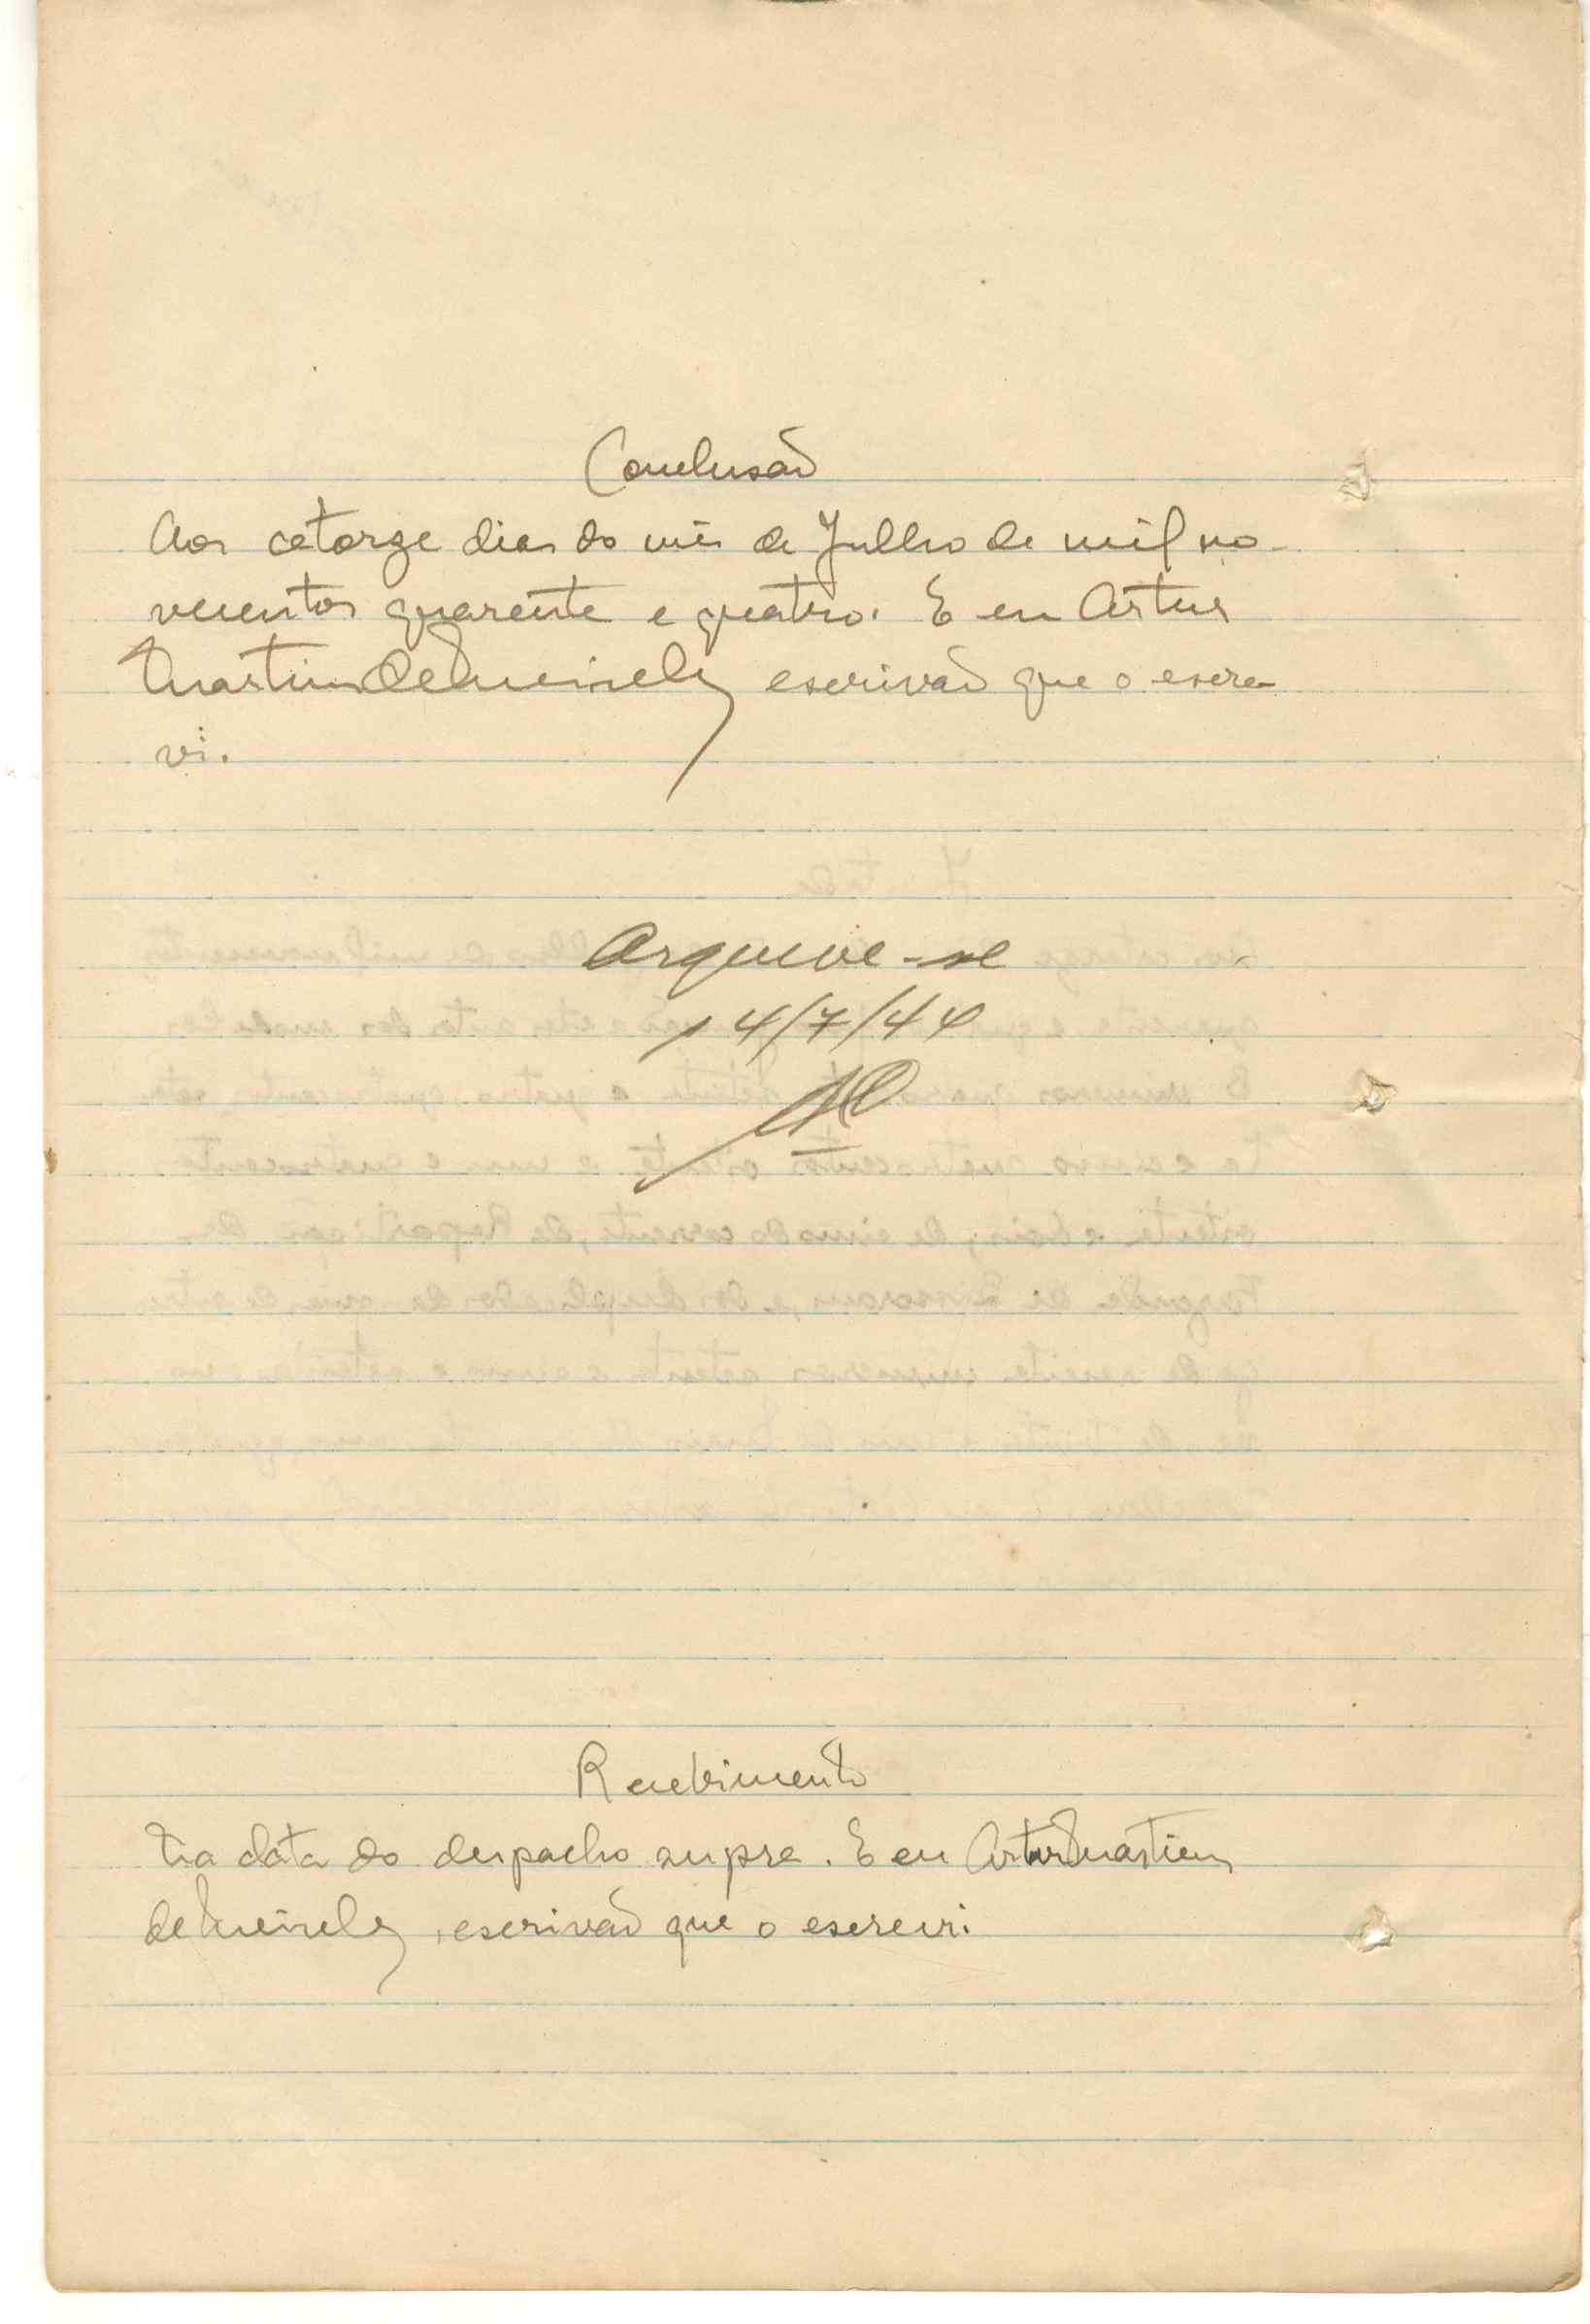 Conclusão
Aos catorze dias do mês de Julho de mil no-
vecentos quarenta e quatro. E eu Artur
Martins de escrivão que o escre-
vi.
Arquive-se
14/7/44
Recebimento
Na data do despacho supra. E eu Artur Martins
de , escrivão que o escrevi.